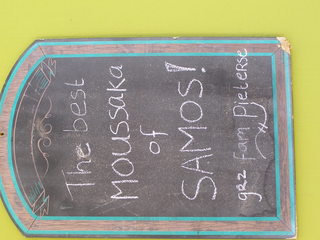 The best
MOUSSAKA
of
SAMOS!
grz fam Pieterse